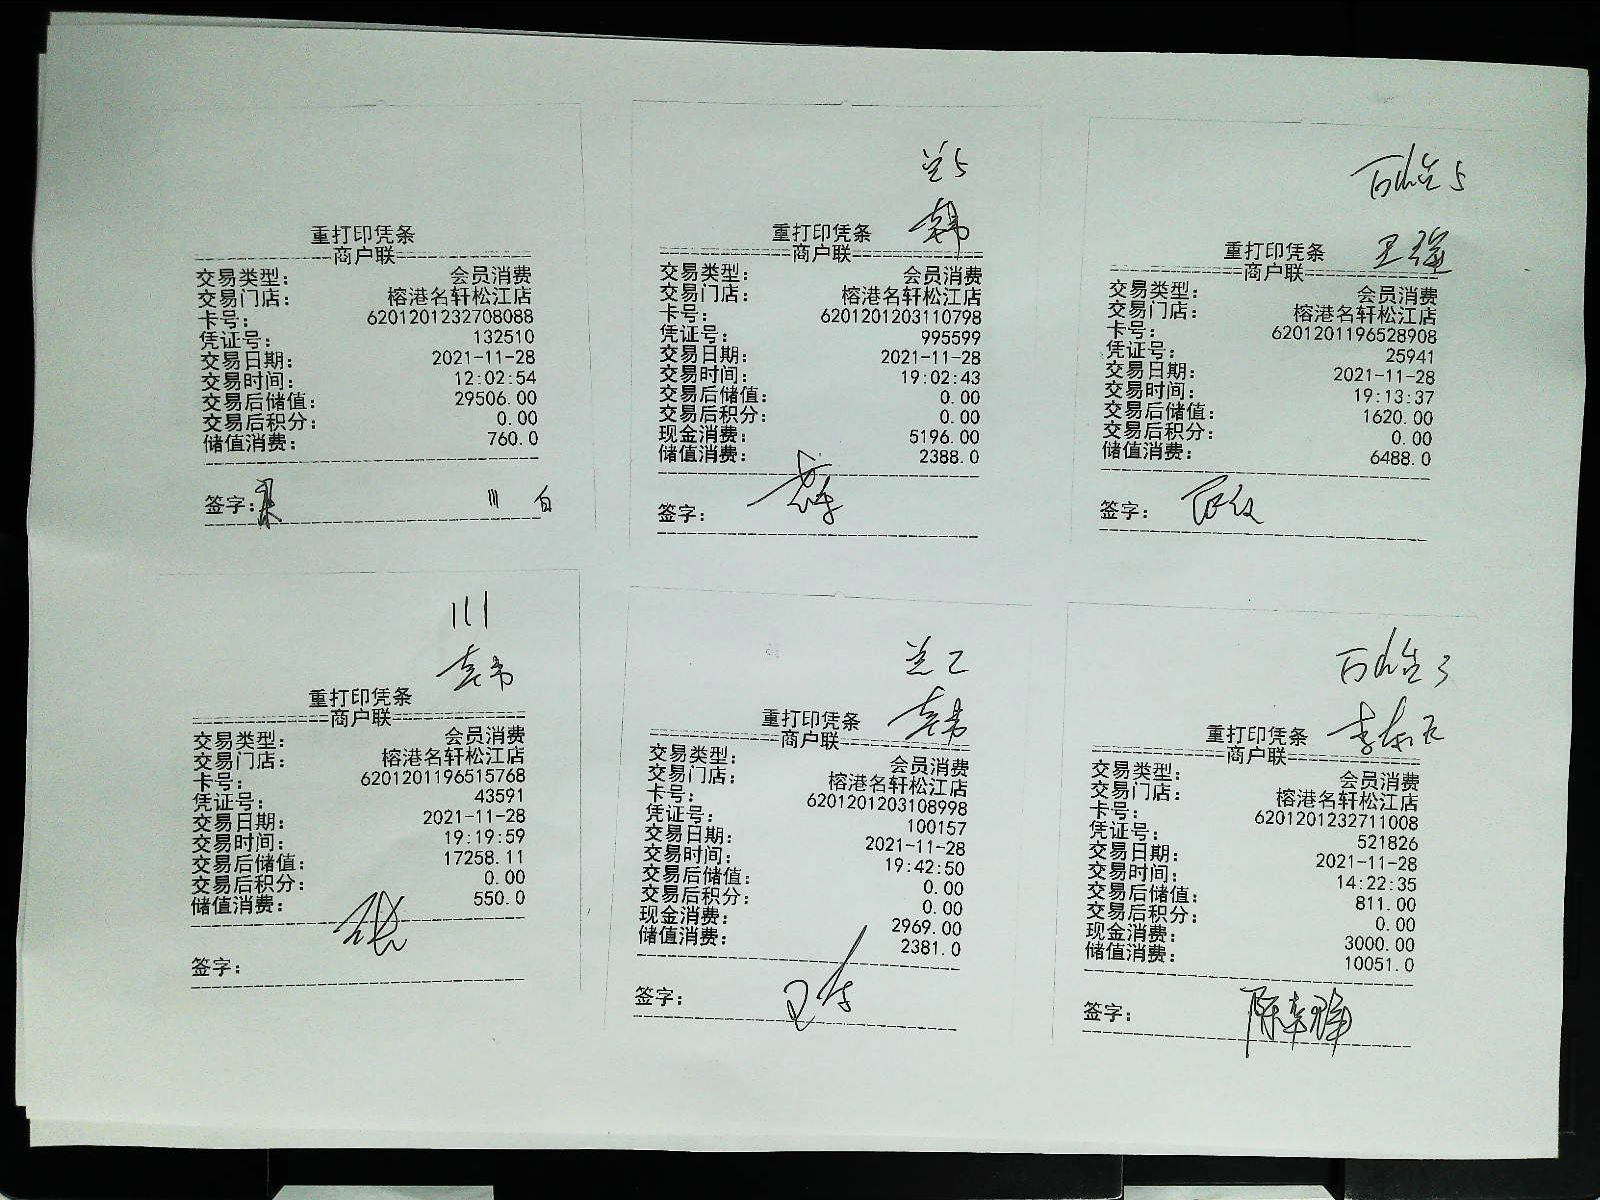 重打印凭条
商户联
交易类型: 会员消费
交易门店: 榕港名轩松江店
卡号: 6201201232708088
凭证号: 132510
交易日期: 2021-11-28
交易时间: 12:02:54
交易后储值: 29506.00
交易后积分: 0.00
储值消费: 760.0
签字:
兰5
重打印凭条
商户联
交易类型: 会员消费
交易门店: 榕港名轩松江店
卡号: 6201201203110798
凭证号: 995599
交易日期: 2021-11-28
交易时间: 19:02:43
交易后储值: 0.00
交易后积分: 0.00
现金消费: 5196.00
储值消费: 2388.0
签字:
重打印凭条
商户联
交易类型: 会员消费
交易门店: 榕港名轩松江店
卡号: 6201201196528908
凭证号: 25941
交易日期: 2021-11-28
交易时间: 19:13:37
交易后储值: 1620.00
交易后积分: 0.00
储值消费: 6488.0
签字:
111
重打印凭条
商户联
交易类型: 会员消费
交易门店: 榕港名轩松江店
卡号: 6201201196515768
凭证号: 43591
交易日期: 2021-11-28
交易时间: 19:19:59
交易后储值: 17258.11
交易后积分: 0.00
储值消费: 550.0
签字:
兰2
重打印凭条
商户联
交易类型: 会员消费
交易门店: 榕港名轩松江店
卡号: 6201201203108998
凭证号: 100157
交易日期: 2021-11-28
交易时间: 19:42:50
交易后储值: 0.00
交易后积分: 0.00
现金消费: 2969.00
储值消费: 2381.0
签字:
重打印凭条
商户联
交易类型: 会员消费
交易门店: 榕港名轩松江店
卡号: 6201201232711008
凭证号: 521826
交易日期: 2021-11-28
交易时间: 14:22:35
交易后储值: 811.00
交易后积分: 0.00
现金消费: 3000.00
储值消费: 10051.0
签字: